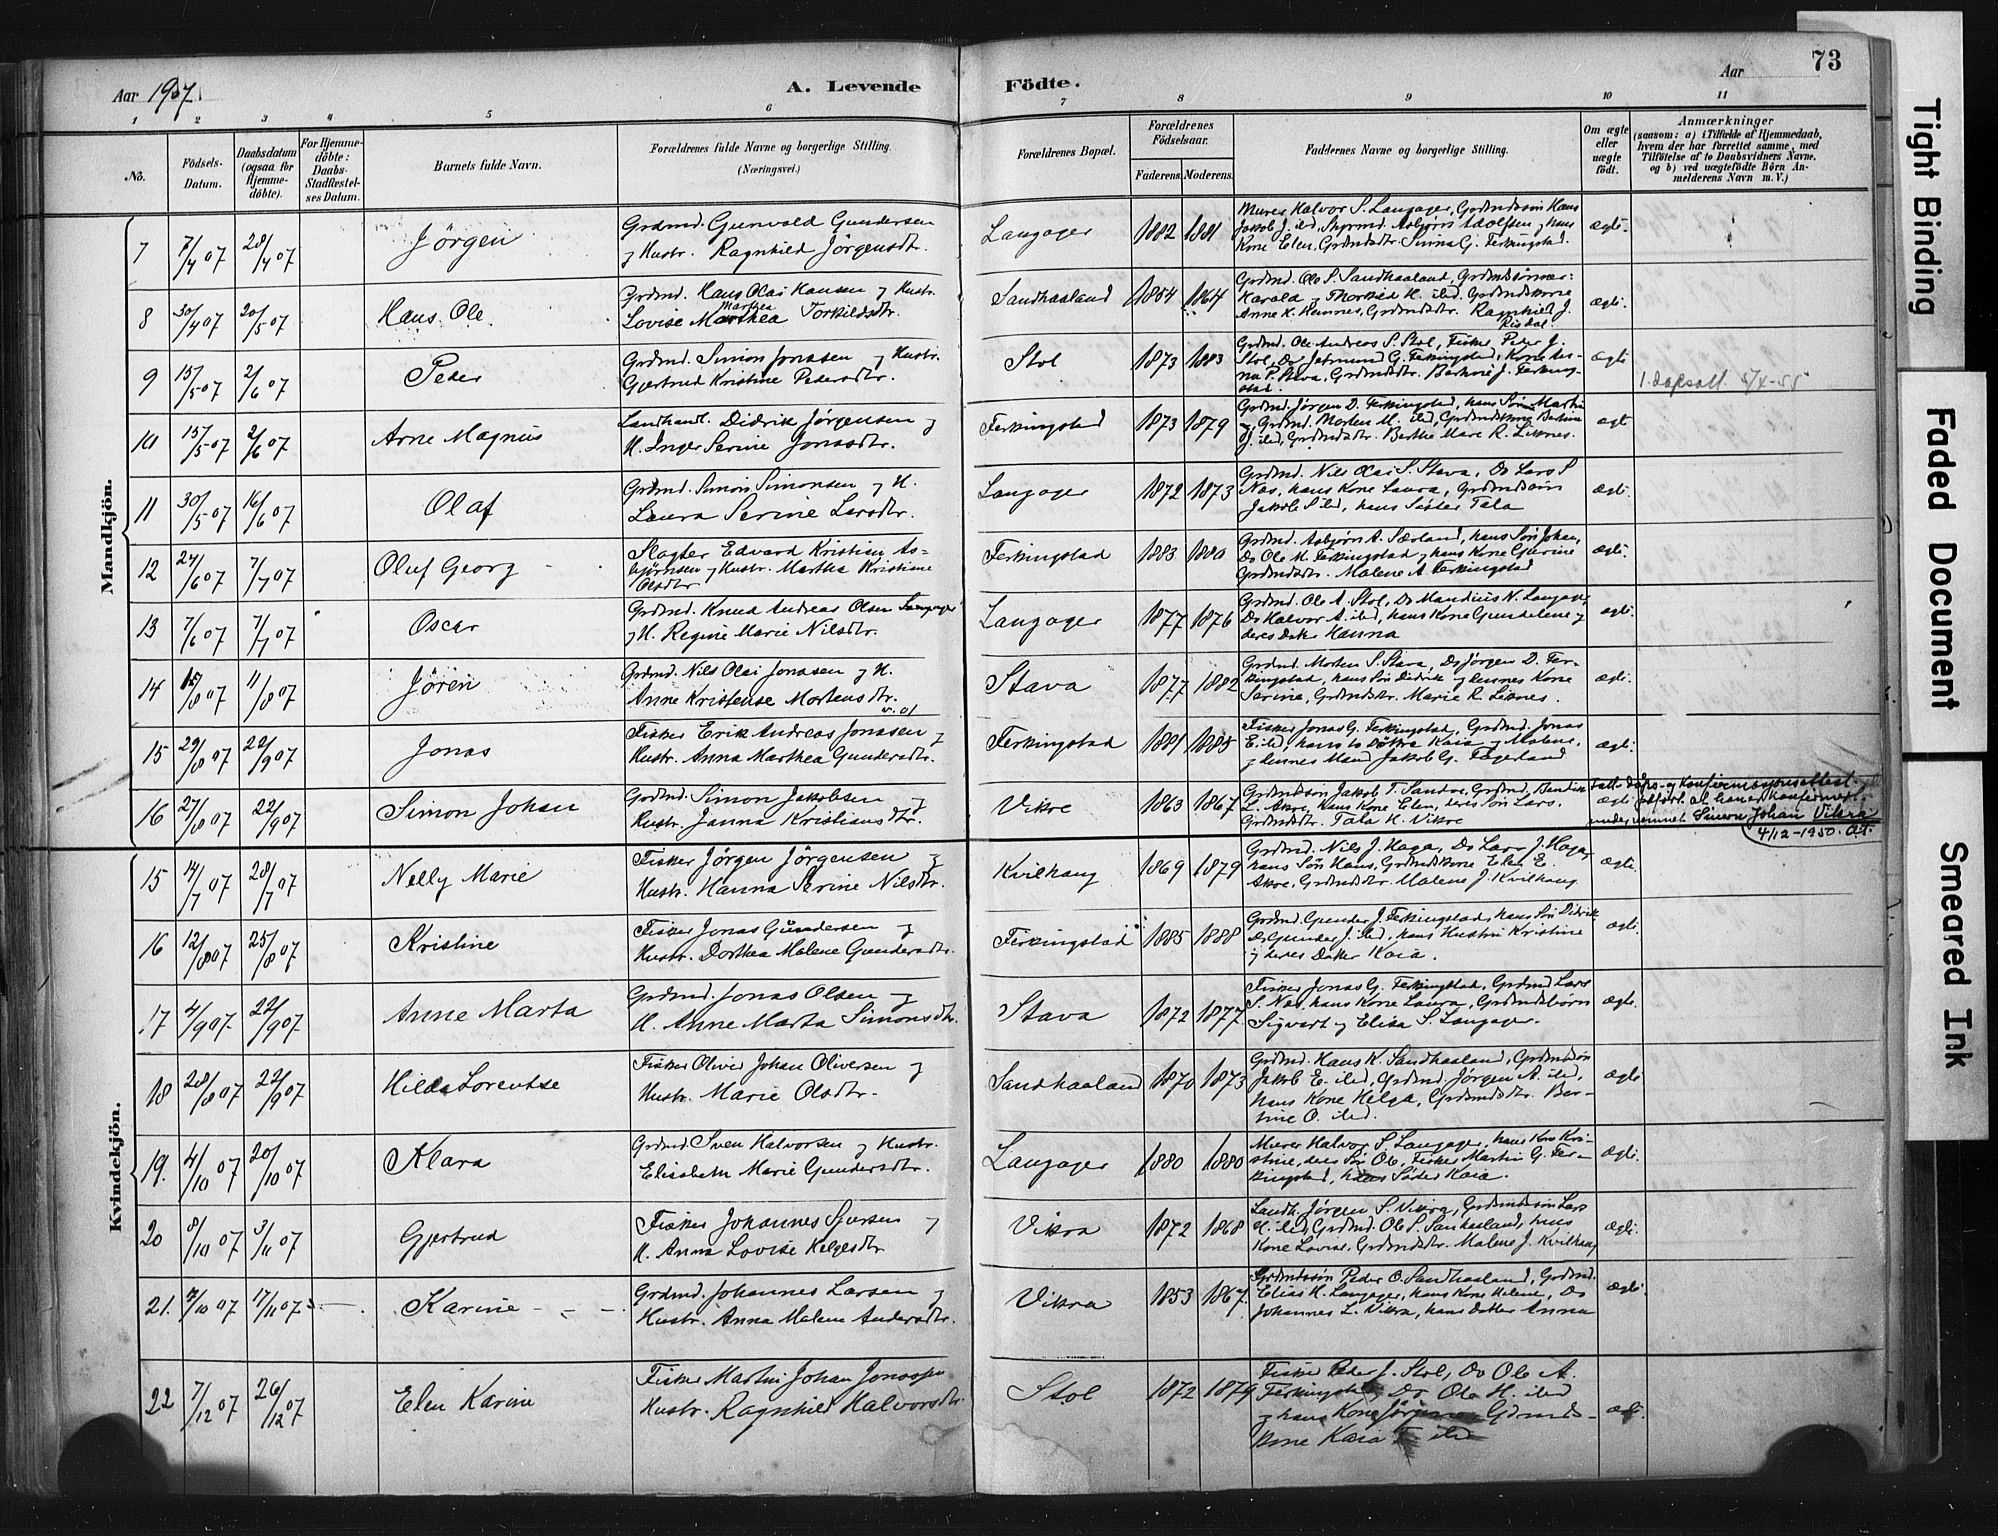 73
Aar 1907
A. Levende Födte.
Aar
1 2 3 4 5 6 7 8 9 10 11
No.
Födsels-Datum.
Daabsdatum (ogsaa for Hjemmedöbte).
For Hjemmedöbte: Daabs-Stadfæstelses Datum.
Barnets fulde Navn.
Forældrenes fulde Navne og borgerlige Stilling. (Næringsvei.)
Forældrenes Bopæl.
Forældrenes Födselsaar.
Faderens. Moderens.
Faddernes Navne og borgerlige Stilling.
Om ægte eller uægte födt.
Anmærkninger
(saasom: a) i Tilfælde af Hjemmedaab, hvem der har forrettet samme, med Tilföielse af to Daabsvidners Navne, og b) ved uægtefödte Börn Anmelderens Navn m. V.)
Mandkjön.
7 7/4 07 28/4 07 Jörgen
Grdmd. Gunvald Gundersen
og Hustr. Ragnhild Jörgensdtr.
Langager 1882 1881
Murer Halvor S. Langager, Grdmdssön Hans
Jakob J. ibd, Styrmd. Asbjörn Adolfsen og hans
Kone Elen, Grdmdsdtr. Sinna G. Ferkingstad.
ægte.
8 30/4 07 20/5 07 Hans Ole
Grdmd. Hans Olai Hansen og Hustr.
Lovise Marthea Torkildsdtr.
Sandhaaland 1854 1864
Grdmd. Ole S. Sandhaaland, Grdmdssönner:
Harald og Thorkild H. ibd. Grdmdskone
Anne K. Hemnes, Grdmdsdtr. Ragnhild J.
Risdal
ægte.
9 15/5 07 2/6 07 Peder
Grdmd. Simon Jonassen og Hustr.
Gjertrud Kristine Pedersdtr.
Stol 1873 1883
Grdmd. Ole Andreas S. Stol, Fisker Peder J.
Stol, Do Jetmund G. Ferkingstad, Kone An-
na P. Stava, Grdmdsdtr. Berthine J. Ferking-
stad.
ægte
1. dåpsatt. 5/4-55
10 15/5 07 2/6 07 Arne Magnus
Landhandl. Didrik Jörgensen og
H. Inger Serine Jonasdtr.
Ferkingstad 1873 1879
Grdmd. Jörgen D. Ferkingstad, hans Sön Martin
og Grdmd. Morten M. ibd, Grdmdskone Bertine
J. ibd, Grdmdsdtr. Berthe Marie R. Liknes.
ægte
11 30/5 07 16/6 07 Olaf
Grdmd. Simon Simonsen og H.
Laura Serine Larsdtr.
Langager 1872 1873
Grdmd. Nils Olai S. Stava, Do Lars S
Nas, hans Kone Laura, Grdmdssön
Jakob S ibd, hans Söster Tala
ægte.
12 24/6 07 7/7 07 Oluf Georg
Slagter Edvard Kristian As-
björnsen og Hustr. Martha Kristiane
Olsdtr
Ferkingstad 1883 1880
Grdmd. Asbjörn A. Sæland, hans Sön Johan,
Do Ole M. Ferkingstad og hans Kone Gurine
Grdmdsdtr. Malene A Ferkingstad
ægte.
13 7/6 07 7/7 07 Oscar
Grdmd. Knud Andreas Olsen Langager
og H. Regine Marie Nilsdtr.
Langager 1877 1876
Grdmd. Ole A. Stol, Do Mandius N. Langager
Do Halvor A. ibd, hans Kone Gundelene og
deres Datter Hanna
ægte.
14 15/8 07 11/8 07 Jören
Grdmd. Nils Olai Jonassen og H.
Anne Kristense Mortensdtr.
Stava 1877 1882
Grdmd. Morten S. Stava, Do Jörgen D. Fer-
kingstad, hans Sön Didrik og dennes Kone
Serine, Grdmdsdtr. Marie R. Liknes.
ægte.
15 29/8 07 22/9 07 Jonas
Fisker Erik Andreas Jonassen og
Hustr. Anna Marthea Gundersdtr.
Ferkingstad 1881 1885
Fisker Jonas G. Ferkingstad, Grdmd. Jonas
E. ibd, hans to Döttre Kaia og Malene,
og dennes Mand Jakob G. Fagerland
ægte.
16 27/8 07 22/9 07 Simon Johan
Grdmd. Simon Jakobsen og
Hustr. Janna Kristiansdtr.
Vikre 1863 1867
Grdmdssön Jakob T. Sandve, Grdmd. Bendik
L. Akre, hans Kone Elen, deres Sön Lars.
Grdmdsdtr. Tala H. Vikre
ægte
dåps- og konfirmasjonsattest
utført at han er konfirmert
under navnet Simon Johan Vikra
4/12-1950.
Kvindekjön.
15 14/7 07 28/7 07 Nelly Marie
Fisker Jörgen Jörgensen og
Hustr. Hanna Serine Nilsdtr.
Kvilhaug 1869 1879
Grdmd. Nils J. Haga, Do Lars J. Haga,
hans Sön Hans, Grdmdskone Elen E.
Akre, Grdmdsdtr. Malene J. Kvilhaug
ægte.
16 12/8 07 25/8 07 Kristine
Fisker Jonas Gundersen og
Hustr. Dorthea Malene Gundersdtr.
Ferkingstad 1885 1888
Grdmd. Gunder J. Ferkingstad, hans Sön Didrik
Do Gunder J. ibd, hans Hustru Kristine
og deres Datter Kaia.
ægte.
17 4/9 07 22/9 07 Anne Marta
Grdmd. Jonas Olsen og
H. Anne Marta Simonsdtr.
Stava 1872 1877
Fisker Jonas G. Ferkingstad, Grdmd Lars
S. Nas, hans Kone Laura, Grdmdsbörn
Sigvart og Elisa S. Langager.
ægte.
18 28/8 07 22/9 07 Hilda Lorentse
Fisker Oliver Johan Oliversen og
Hustr. Marie Olsdtr.
Sandhaaland 1870 1873
Grdmd. Hans K. Sandhaaland, Grdmdssön
Jakob E. ibd, Grdmd. Jörgen A. ibd,
hans Kone Helga, Grdmdsdtr. Ber-
tine O. ibd.
ægte
19. 4/10 07 20/10 07 Klara
Grdmd. Sven Halvorsen og Hustr.
Elisabeth Marie Gundersdtr.
Langager 1880 1880
Murer Halvor S Langager, hans Kone Kri-
stine, deres Sön Ole, Fisker Martin G. Fer-
kingstad, hans Söster Kaia.
ægte.
20 8/10 07 3/11 07 Gjertrud
Fisker Johannes Sjursen og
H. Anna Lovise Helgesdtr
Vikra 1872 1868
Landh. Jörgen S. Vikra, Grdmdssön Lars
H. ibd, Grdmd. Ole S. Sandhaaland, hans
Kone Lovise, Grdmdsdtr. Malene J. Kvilhaug
ægte.
21. 7/10 07 17/11 07 Karine
Grdmd. Johannes Larsen og
Hustr. Anna Malene Andersdtr.
Vikra 1853 1867
Grdmdssön Peder O. Sandhaaland, Grdmd.
Elias H. Langager, hans Kone Helene, Do
Johannes L. Vikra, hans Datter Anna
ægte.
22 7/12 07 26/12 07 Elen Karine
Fisker Martin Johan Jonassen
Hustr. Ragnhild Halvorsdtr.
Stol 1872 1879
Fisker Peder J. Stol, Do Ole A.
Ferkingstad, Do Ole H. ibd
og hans Kone Jörgine, Grdmds-
kone Kaia T. ibd
ægte.
Tight Binding
Faded Document
Smeared Ink